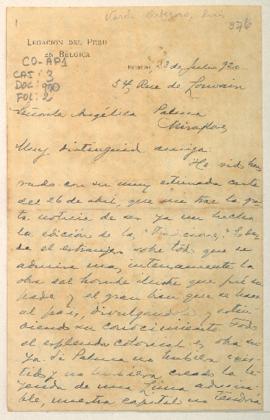 376
LEGACION DEL PERÚ
EN BELGICA
CO-AP1
CAJ: 3
DOC: 970
FOL: 2
23 de Julio 920
54 Rue de Louvain
Señorita Angélica Palma
Miraflores
Muy distinguida amiga:
He sido hon
rado con su muy estimada carta
del 26 de abril, que me trae la gra
ta noticia de ser ya un hecho
la edición de las
el extranjero sobre todo que se
admira mas intensamente la
obra del hombre ilustre que fué su
padre y el gran bien que se hace
al país, divulgando y exten
diendo su conocimiento. Todo
el esplendor colonial es obra su
ya. Si Palma no hubiera exis
tido y no hubiera creado la le
yenda de una Lima admira
ble, nuestra capital no tendría